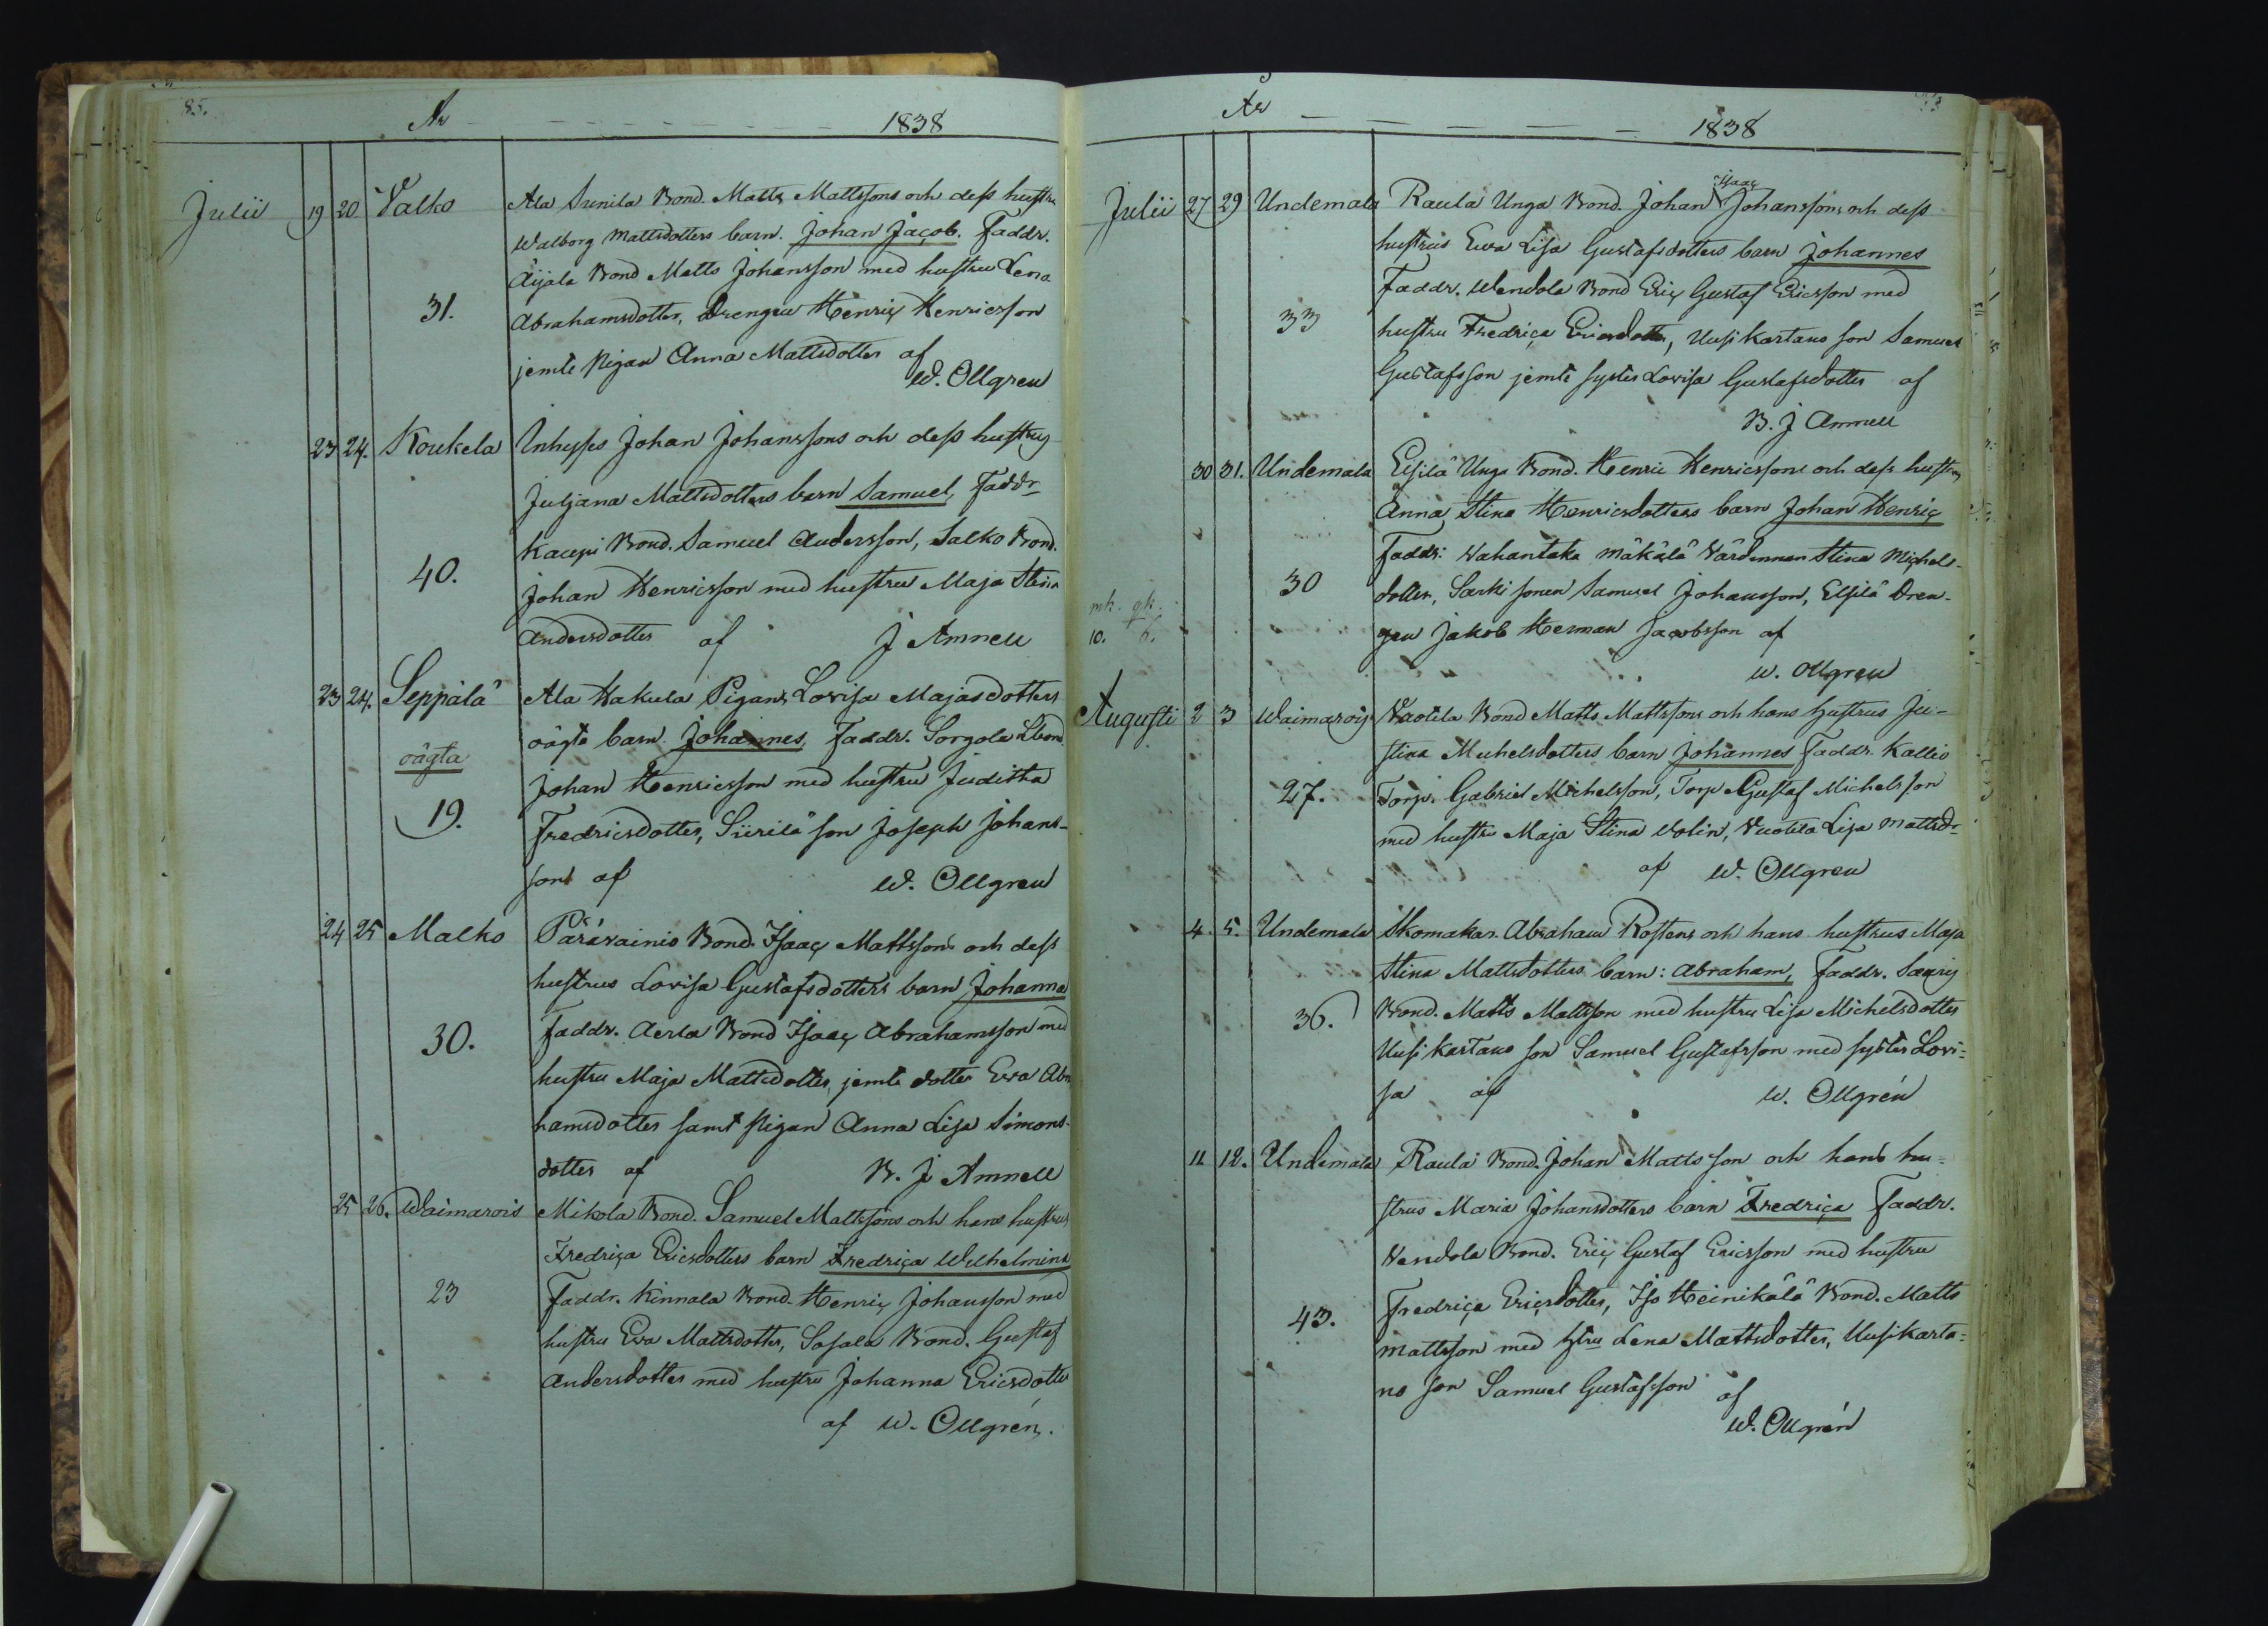 85.
År 1838
Julii 19 20 Salko Ala Sunila Bond. Matts Mattssons och dess hustru
Walborg Mattsdotters barn. Johan Jacob. Faddr.
Äijälä Bond Matts Johansson med hustru Lena
31. Abrahamsdotter, Drengen Henric Henricsson
jemte Pigan Anna Mattsdotter af
W. Ollgren
23 24. Koukela Inhyses Johan Johanssons och dess hustrus
Juljana Mattsdotters barn Samuel, Faddr
Kauppi Bond. Samuel Andersson, Salko Bond.
40. Johan Henricsson med hustru Maja Stina
Andersdotter af J Amnell
23 24. Seppälä Ala Hakula Pigans Lovisa Majasdotters
oägta oägta barn. Johannes, Faddr. Sorgola Bond
Johan Henricsson med hustru Juditha
19. Fredricsdotter, Siirilä son Joseph Johans-
son af W. Ollgren
24 25 Malko Pärävainio Bond. Isaac Mattssons och dess
hustrus Lovisa Gustafsdotters barn Johanna
30. Faddr. Aerla Bond Isaac Abrahamsson med
hustru Maja Mattsdotter, jemte dotter Eva Abra
hamsdotter samt Pigan Anna Lisa Simons-
dotter af B. J Amnell
25 26. Waimarois Mikola Bond. Samuel Mattssons och hans hustrus
Fredrica Ericsdotters barn Fredrica Wilhelmina
23 Faddr. Kinnala Bond. Henric Johansson med
hustru Eva Mattsdotter, Sasala Bond. Gustaf
Andersdotter med hustru Johanna Ericsdotter
af W. Ollgrén.
År 1838
Julii 27 29 Undemala Raula Unga Bond. Johan Isaac Johanssons och dess
hustrus Ewa Lisa Gustafsdotters barn Johannes
Faddr. Wendola Bond Eric Gustaf Ericsson med
33 hustru Fredrica Ericsdotter, Uusi kartano son Samuel
Gustafsson jemte syster Lovisa Gustafsdotter af
B. J Amnell
30 31. Undemala Elsilä Unga Bond. Henric Henricssons och dess hustrus
Anna Stina Henricsdotters barn Johan Henric
Faddr: Wahantaka Mäkälä Värdinnan Stina Michels-
30 dotter, Sarki sonen Samuel Johansson, Elsilä Dren-
mk. gk.
10. 6.
gen Jakob Herman Jacobsson af
W. Ollgren
Augusti 2 3 Waimarois Vuotila Bond Matts Mattssons och hans hustrus Ju-
stina Michelsdotters barn Johannes Faddr. Kallio
27. Torp. Gabriel Michelsson, Torp Gustaf Michelsson
med hustru Maja Stina Wolin, Vuotila Lisa Mattsdr
af W. Ollgren
4. 5. Undemala Skomakar. Abraham Rostens och hans hustrus Maja
Stina Mattsdotters barn: Abraham, Faddr. Saurij
36. Bond. Matts Mattsson med hustru Lisa Michelsdotter
Uusi kartano son Samuel Gustafsson med syster Lovi-
sa af W. Ollgrén
11 12. Undemala Raula Bond. Johan Mattsson och hans hu-
strus Maria Johansdotters barn Fredrica Faddr.
Wendola Bond. Eric Gustaf Ericsson med hustru
43. Fredrica Ericsdotter, Iso Heinikälä Bond. Matts
Mattsson med hstru Lena Mattsdotter, Uusikarta-
no son Samuel Gustafsson af
W. Ollgrén